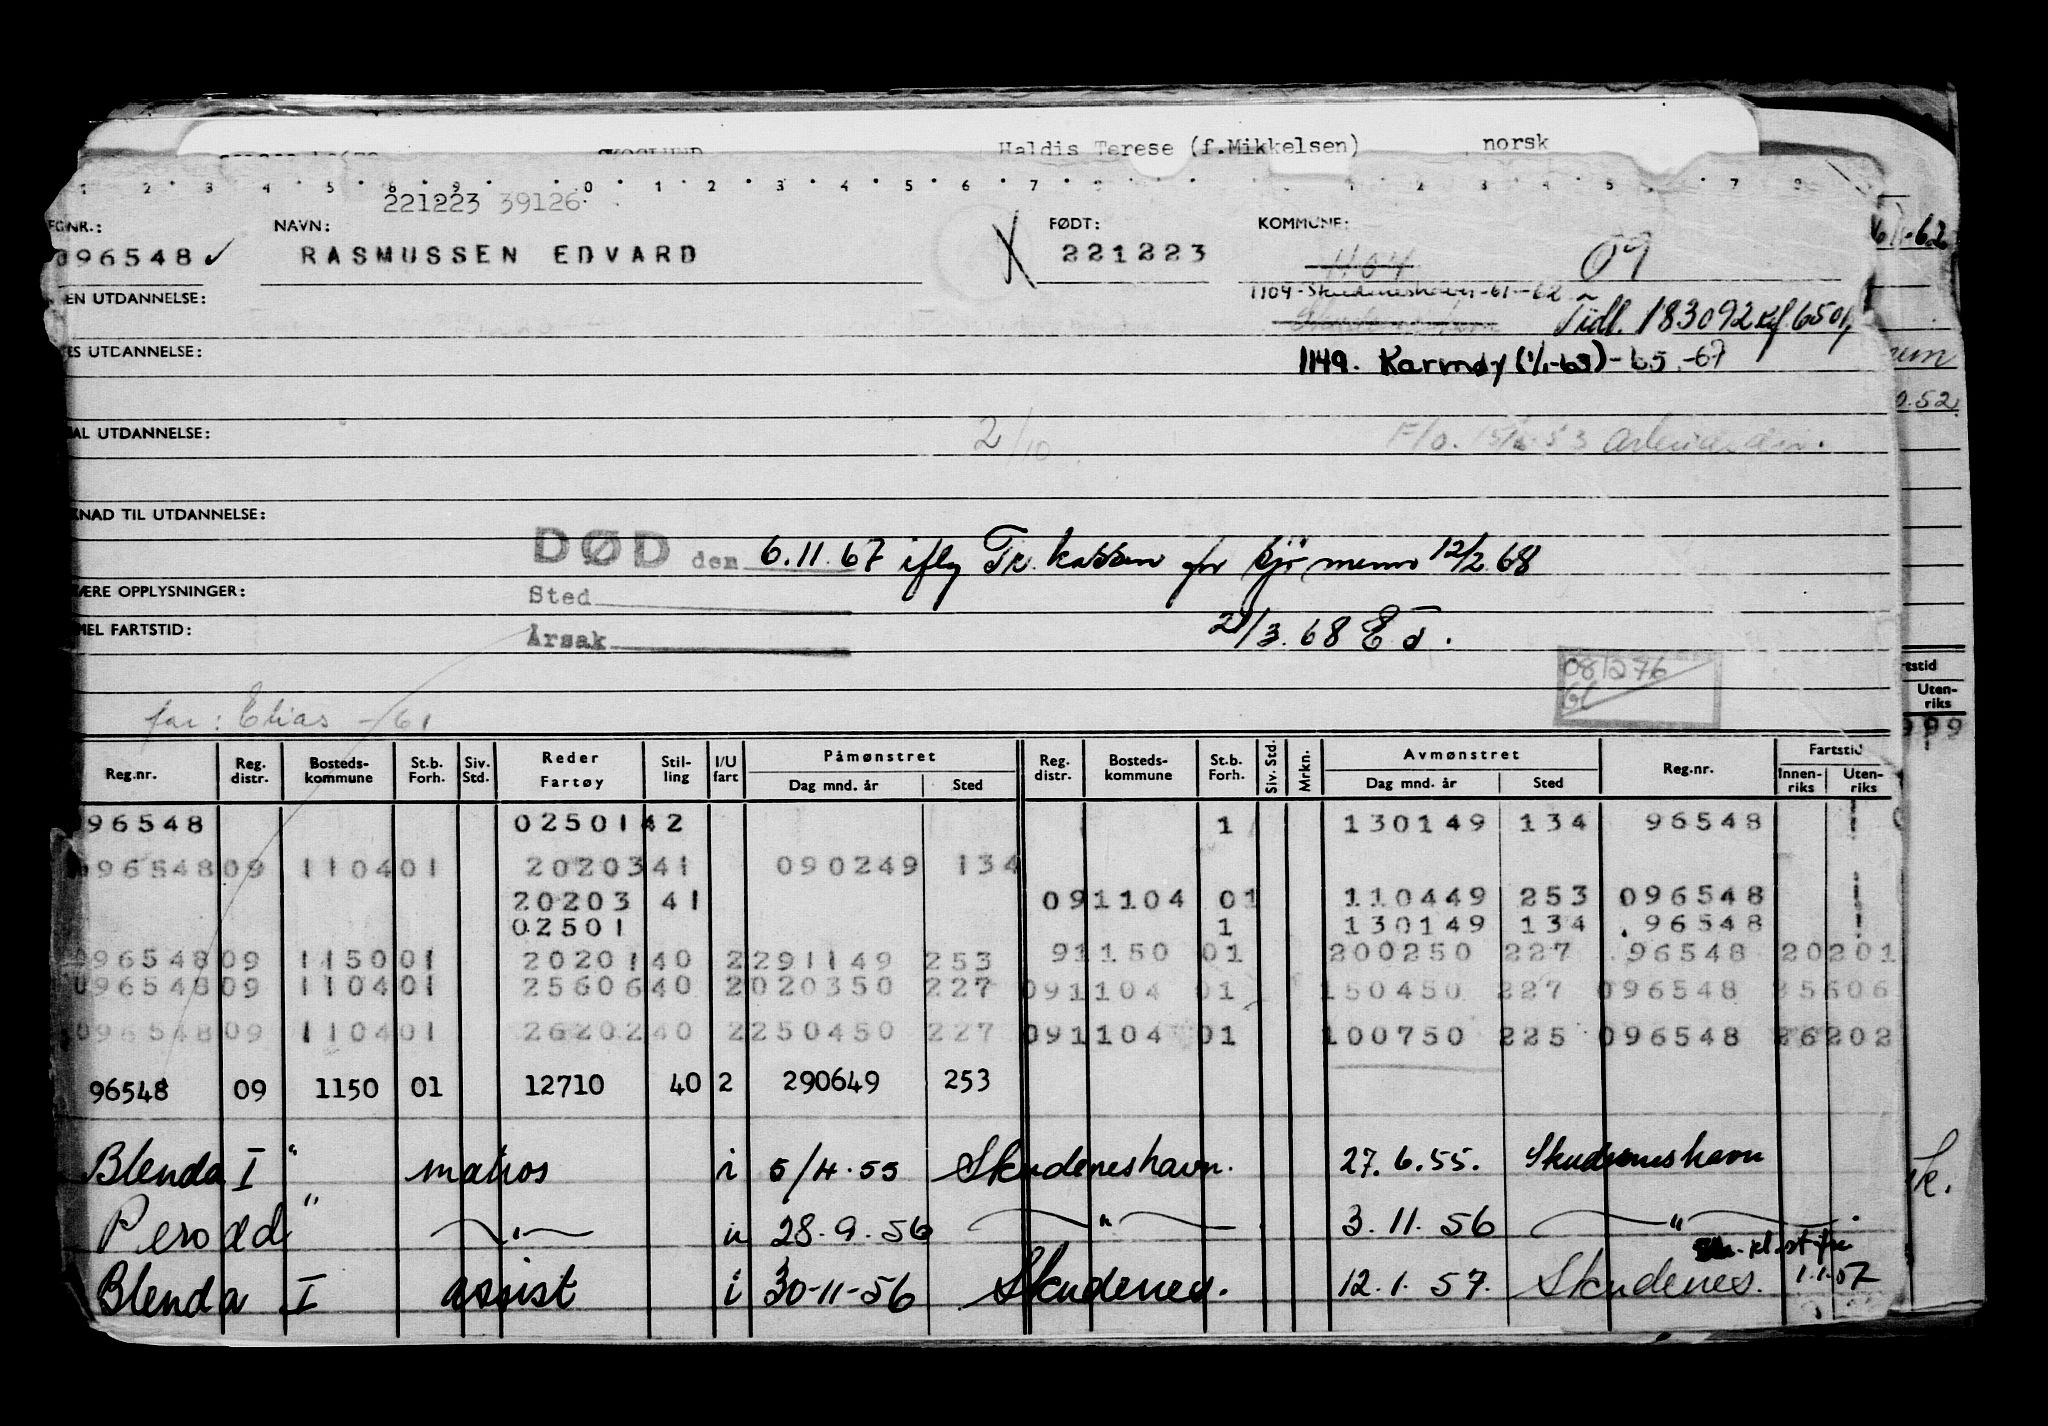 Haldis Terese (f.Mikkelsen) norsk
1 2 3 4 5 8 9 0 1 2 3 4 5 6 7 1 2 3 4 5 7 8
221223 39126
NR.: NAVN: FØDT: KOMMUNE:
096548 ✓ RASMUSSEN EDVARD X 221223 1104 09
EN UTDANNELSE: 1104-Skudeneshavn-61-62
Tidl. 183092
ES UTDANNELSE: 1149. Karmøy (1/1-65)-65-67
0.52
AL UTDANNELSE: 2/10 F/o. 53
KNAD TIL UTDANNELSE:
DØD den 6.11.67 ifly Tr. kassen for sjømenn 12/2.68
ÆRE OPPLYSNINGER: Sted
MEL FARTSTID: Årsak 21/3.68
081276
far: Elias -61
Reg.nr. Reg. distr. Bosteds-kommune St.b. Forh. Siv. Std. Reder Fartøy Stil-ling I/U fart Påmønstret Dag mnd. år Sted Reg. distr. Bosteds-kommune St.b. Forh. Siv. Std. Mrkn. Avmønstret Dag mnd. år Sted Reg.nr. Fartstid Innen-riks Uten-riks
96548 02501 42 1 130149 134 96548
096548 09 1104 01 20203 41 090249 134
20203 41 09 1104 01 110449 253 096548
02501 1 130149 134 96548
096548 09 1150 01 20201 40 2 291149 253 9 1150 01 200250 227 96548 20201
096548 09 1104 01 25606 40 2 020350 227 09 1104 01 150450 227 096548 25606
096548 09 1104 01 26202 40 2 250450 227 09 1104 01 100750 225 096548 26202
96548 09 1150 01 12710 40 2 290649 253
Blenda I " matros i 5/4.55 Skudeneshavn. 27.6.55. Skudeneshavn
Perodd " " u 28.9.56 " 3.11.56 "
Blenda I assist i 30-11-56 Skudenes. 12.1.57. Skudenes. 1.1.57